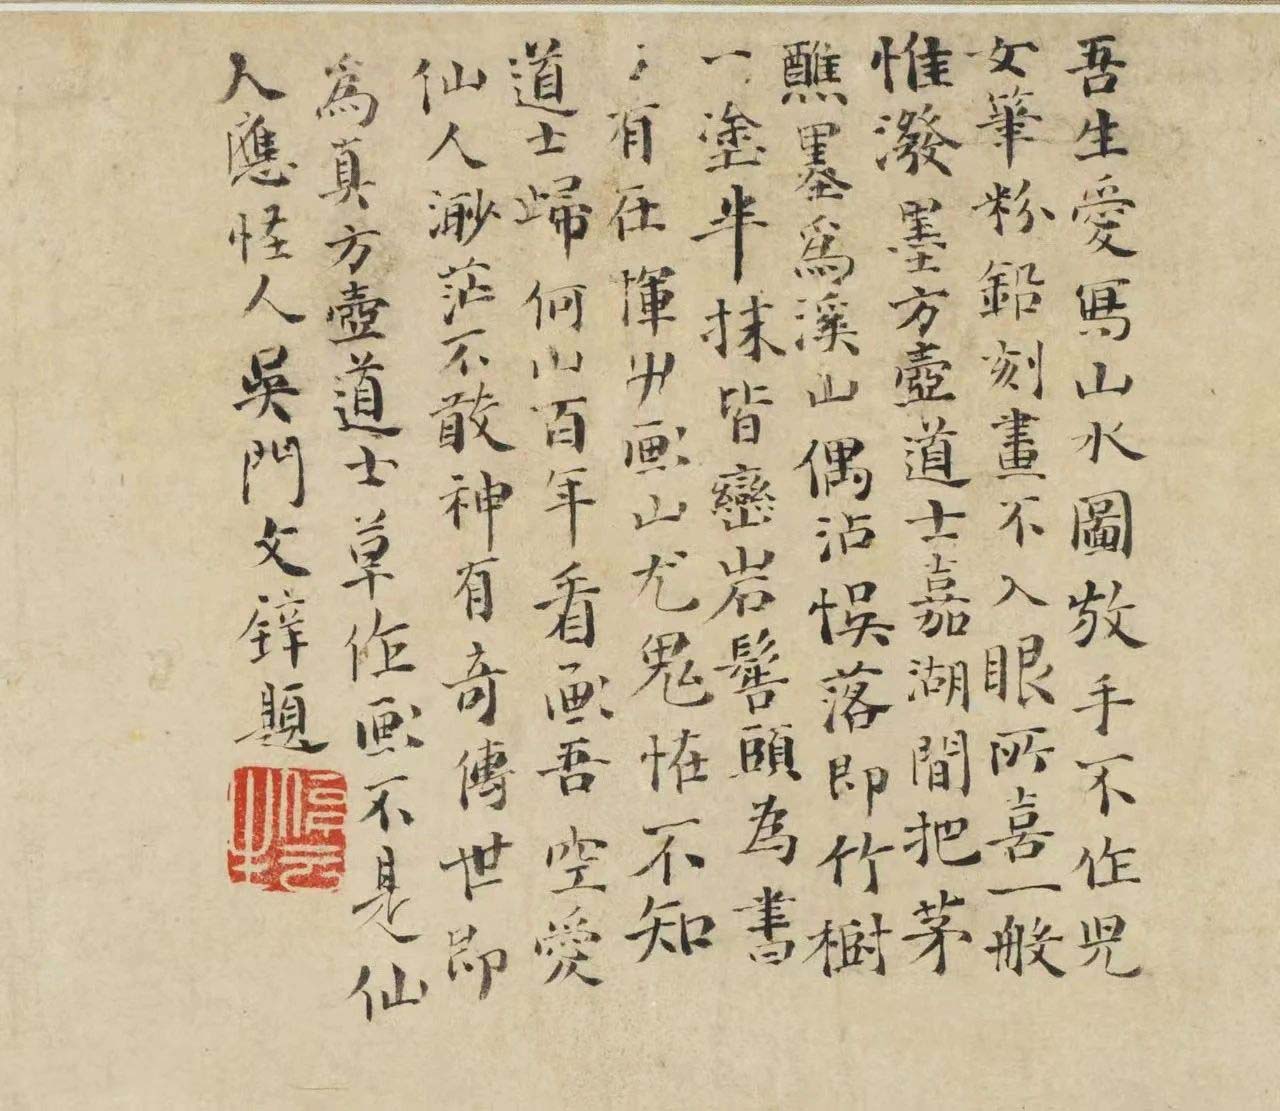 吾生愛寫山水圖放手不作児
女筆粉鉛刻畫不入眼所喜一般
惟潑墨方壺道士嘉湖間把茅
醮墨爲溪山偶沾悞落即竹樹
一塗半抹皆巒岩髻頭為書
有在惲畫山尤鬼恠不知
道士歸何山百年看畫吾空愛
仙人渺茫不敢神有奇傳世即
爲真方壺道士草作畫不是仙
人應怪人吳門文鋅題